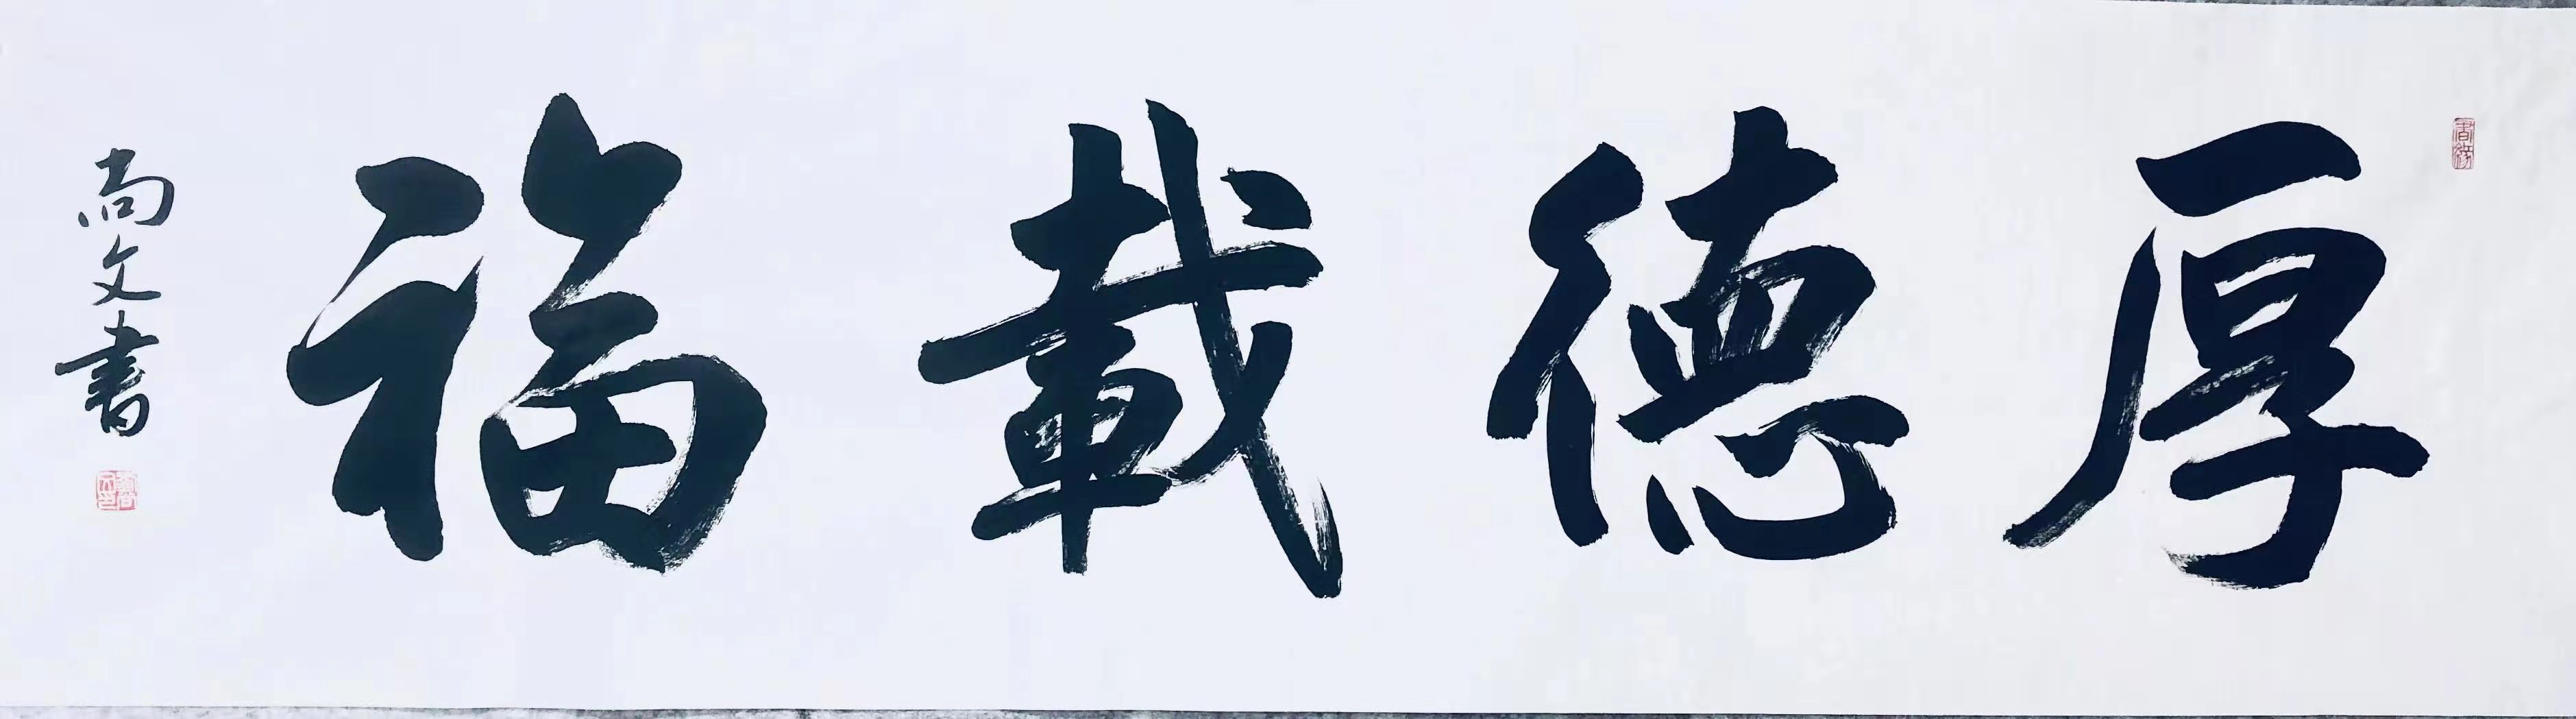 厚德載福
尚文書